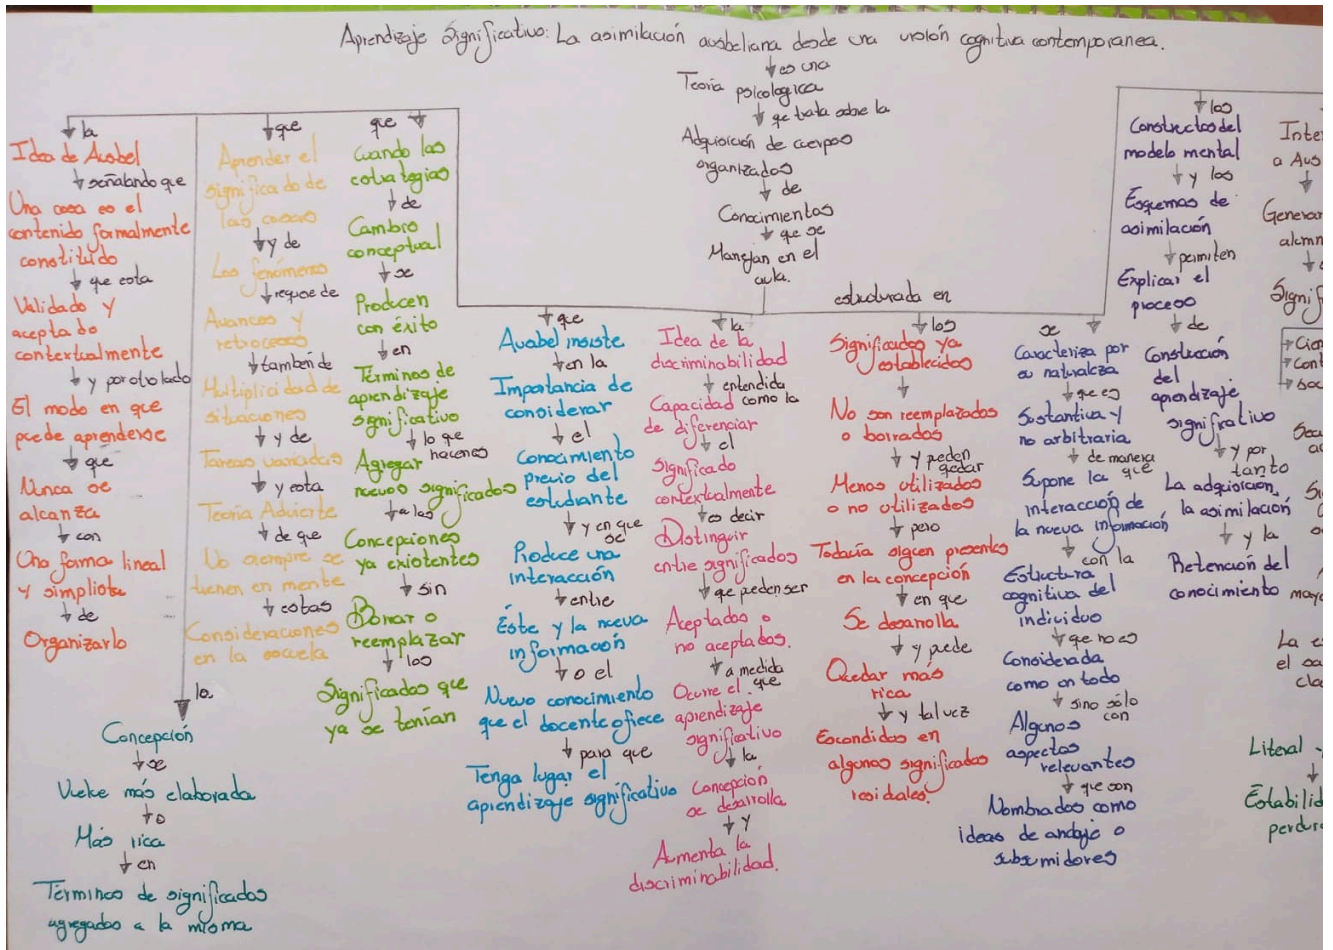 Aprendizaje Significativo: La asimilación ausbeliana desde una visión cognitiva contemporanea.
es una
Teoría psicologica
que trata sobre la
Adquisición de cuerpos
organizados
de
Conocimientos
que se
Manejan en el
aula.
la
Idea de Ausbel
señalando que
Una cosa es el
contenido formalmente
constituido
que esta
Validado y
aceptado
contextualmente
y por otro lado
El modo en que
puede aprenderse
que
Nunca se
alcanza
con
Una forma lineal
y simplista
de
Organizarlo
la
Concepción
se
Vuelve más elaborada
o
Más rica
en
Términos de significados
agregados a la misma
que
Aprender el
significado de
las cosas
y de
Los fenómenos
requiere de
Avances y
retrocesos
también de
Multiplicidad de
situaciones
y de
Tareas variadas
y esta
Teoría Advierte
de que
No siempre se
tienen en mente
estas
Consideraciones
en la escuela
que
Cuando las
estrategias
de
Cambio
conceptual
se
Producen
con éxito
en
Términos de
aprendizaje
significativo
lo que
hacen es
Agregar
nuevos significados
a las
Concepciones
ya existentes
sin
Borrar o
reemplazar
los
Significados que
ya se tenían
que
Ausbel insiste
en la
Importancia de
considerar
el
Conocimiento
previo del
estudiante
y en que
se
Produce una
interacción
entre
Éste y la nueva
información
o el
Nuevo conocimiento
que el docente ofrece
para que
Tenga lugar el
aprendizaje significativo
la
Idea de la
discriminabilidad
entendida
como la
Capacidad
de diferenciar
el
Significado
contextualmente
es decir
Distinguir
entre significados
que pueden ser
Aceptados o
no aceptados.
a medida
que
Ocurre el
aprendizaje
significativo
la
Concepción
se desarrolla
y
Aumenta la
discriminabilidad.
estructurada en
los
Significados ya
establecidos
No son reemplazados
o borrados
y pueden
quedar
Menos utilizados
o no utilizados
pero
Todavía siguen presentes
en la concepción
en que
Se desarrolla
y puede
Quedar más
rica
y tal vez
Escondidos en
algunos significados
residuales.
se
Caracteriza por
su naturaleza
que es
Sustantiva y
no arbitraria
de manera
que
Supone la
interacción de
la nueva información
con la
Estructura
cognitiva del
individuo
que no es
Considerada
como un todo
sino sólo
con
Algunos
aspectos
relevantes
que son
Nombrados como
ideas de anclaje o
subsumidores
los
Constructos del
modelo mental
y los
Esquemas de
asimilación
permiten
Explicar el
proceso
de
Construcción
del
aprendizaje
significativo
y por
tanto
La adquisición,
la asimilación
y la
Retención del
conocimiento
Inter
a Aus
Generar
alumn
Signif
Cien
Cont
Soc
mayo
La es
el sa
cla
Literal y
Estabilid
perdura